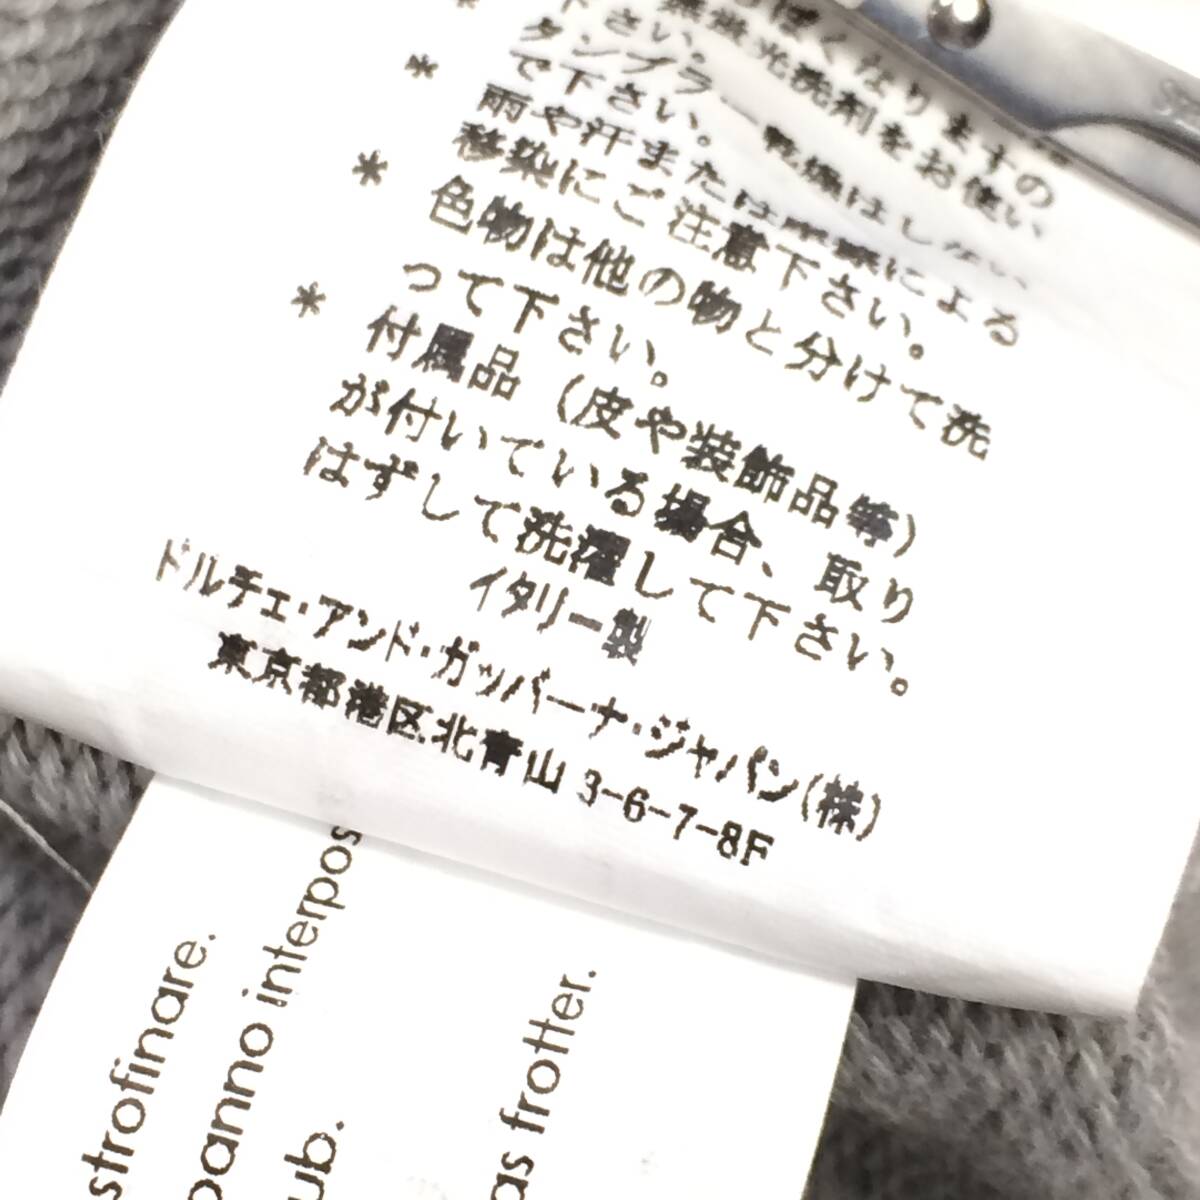 っぽくなりますの
無蛍光洗剤をお使い
下さい。
* タンブラー乾燥はしない
で下さい。
* 雨や汗または摩擦による
移染にご注意下さい。
* 色物は他の物と分けて洗
って下さい。
* 付属品(皮や装飾品等)
が付いている場合、取り
はずして洗濯して下さい。
イタリー製
ドルチェ・アンド・ガッバーナ・ジャパン(株)
東京都港区北青山 3-6-7-8F
strofinare.
panno interpos
ub.
as frotter.